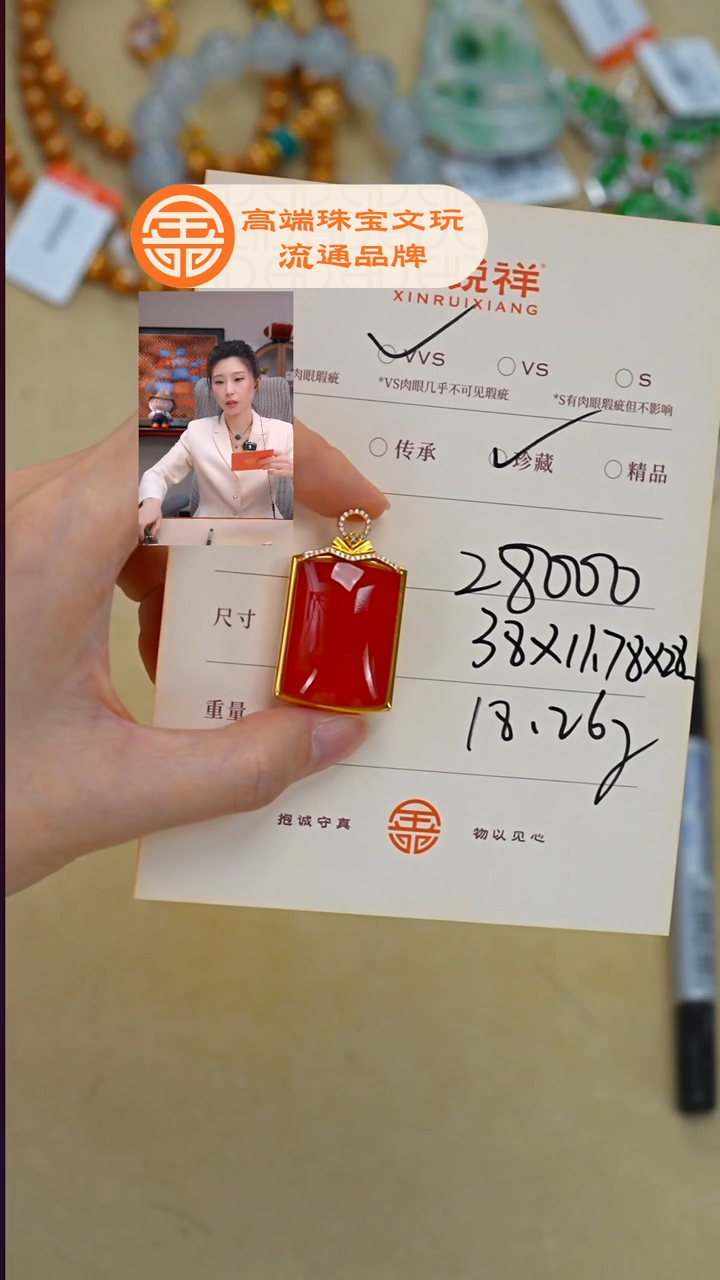 高端珠宝文玩
流通品牌
祥
XINRUIXIANG
VVS
VS
S
肉眼瑕疵
*VS肉眼几乎不可见瑕疵
*S有肉眼瑕疵但不影响
传承
珍藏
精品
28000
尺寸
38×11.78×28
重量
18.26g
抱诚守真
物以见心